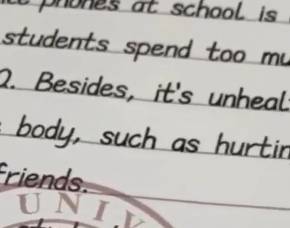 phones at school is
students spend too mu
2. Besides, it's unheal
body, such as hurtin
friends.
UNIV